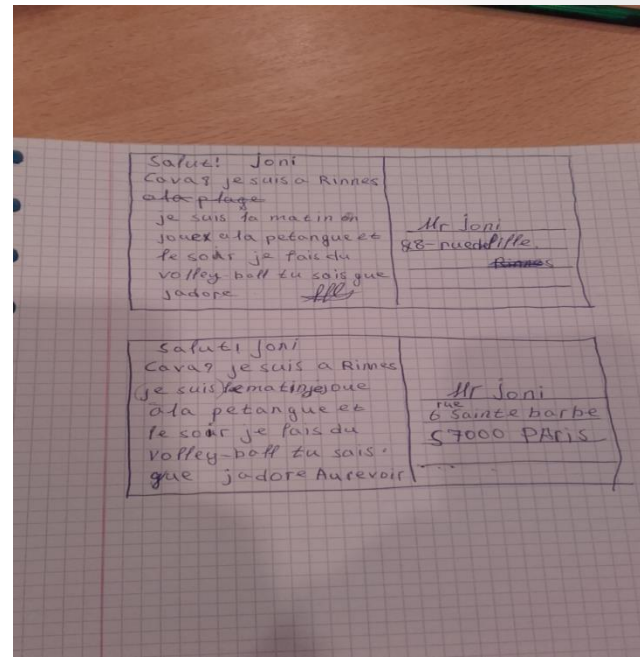 Salut! Joni
Cava? je suis a Rinnes
a la plage
je suis la matin on
jouex a la petangue et
le soir je fais du
volley-boll tu sais que
jadore
Mr Joni
88-rue de lille
Rinnes
Salut! Joni
Cava? je suis a Rinnes
(je suis) le matin je joue
a la petangue et
le soir je fais du
volley-boll tu sais.
que jadore Aurevoir
Mr Joni
rue
6 Sainte barbe
57000 PAris